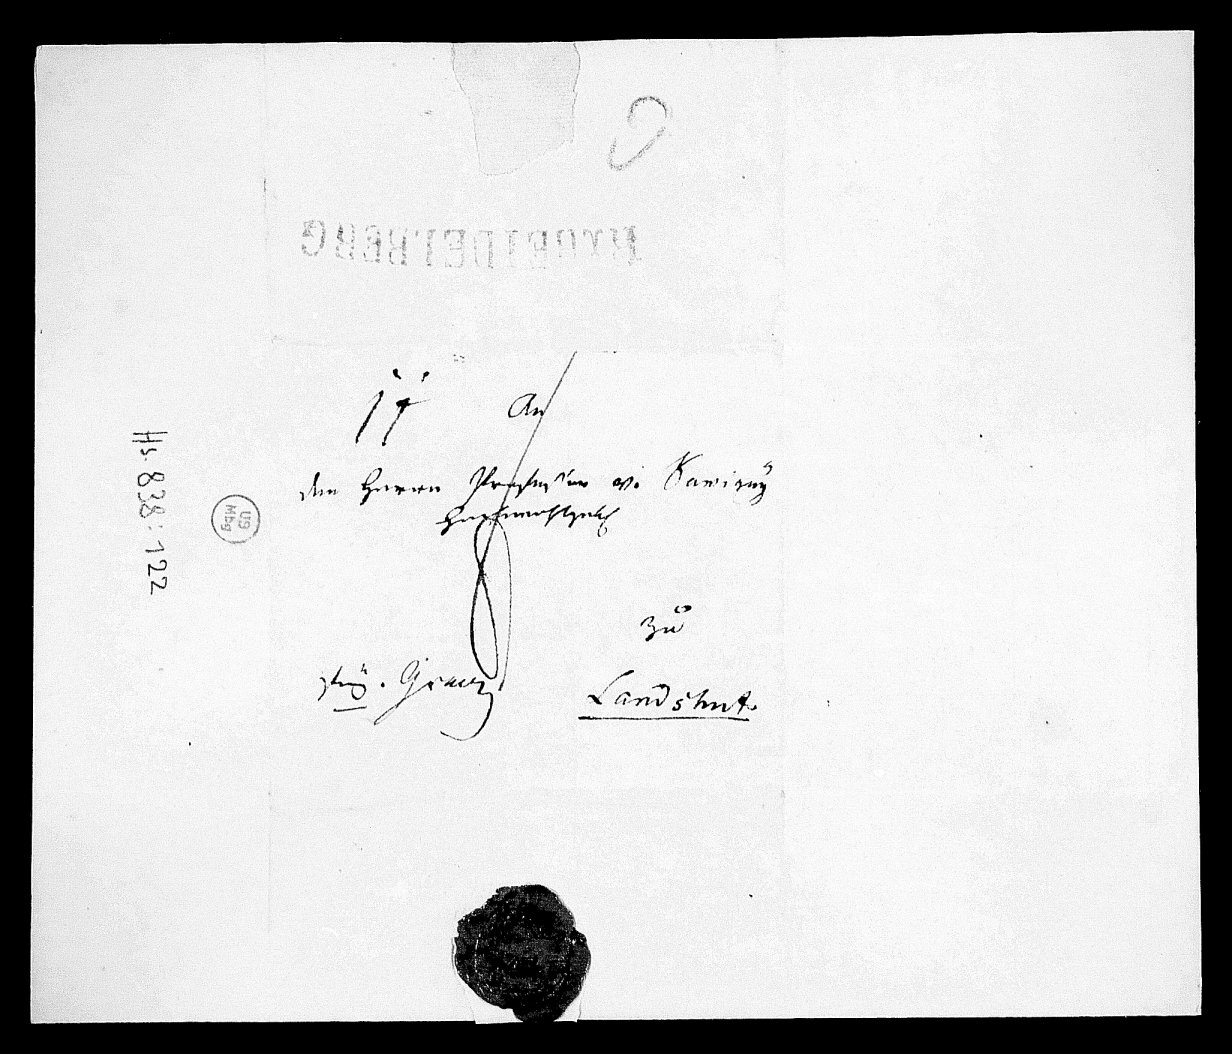 HEIDELBERG
An
den Herrn Professor v. Savigny
Hochwohlgeb
zu
frey. Grenz.
Landshut.
Hs. 838:122
UB
Mbg